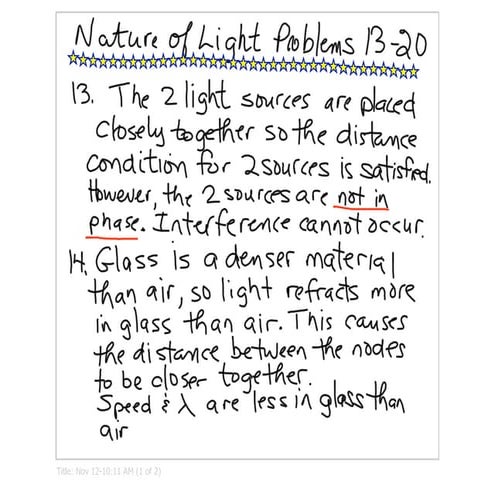 Nature of Light Problems 13-20
13. The 2 light sources are placed
closely together so the distance
condition for 2 sources is satisfied.
However, the 2 sources are not in
phase. Interference cannot occur.
14. Glass is a denser material
than air, so light refracts more
in glass than air. This causes
the distance between the nodes
to be closer together.
Speed & λ are less in glass than
air
Title: Nov 12-10:11 AM (1 of 2)